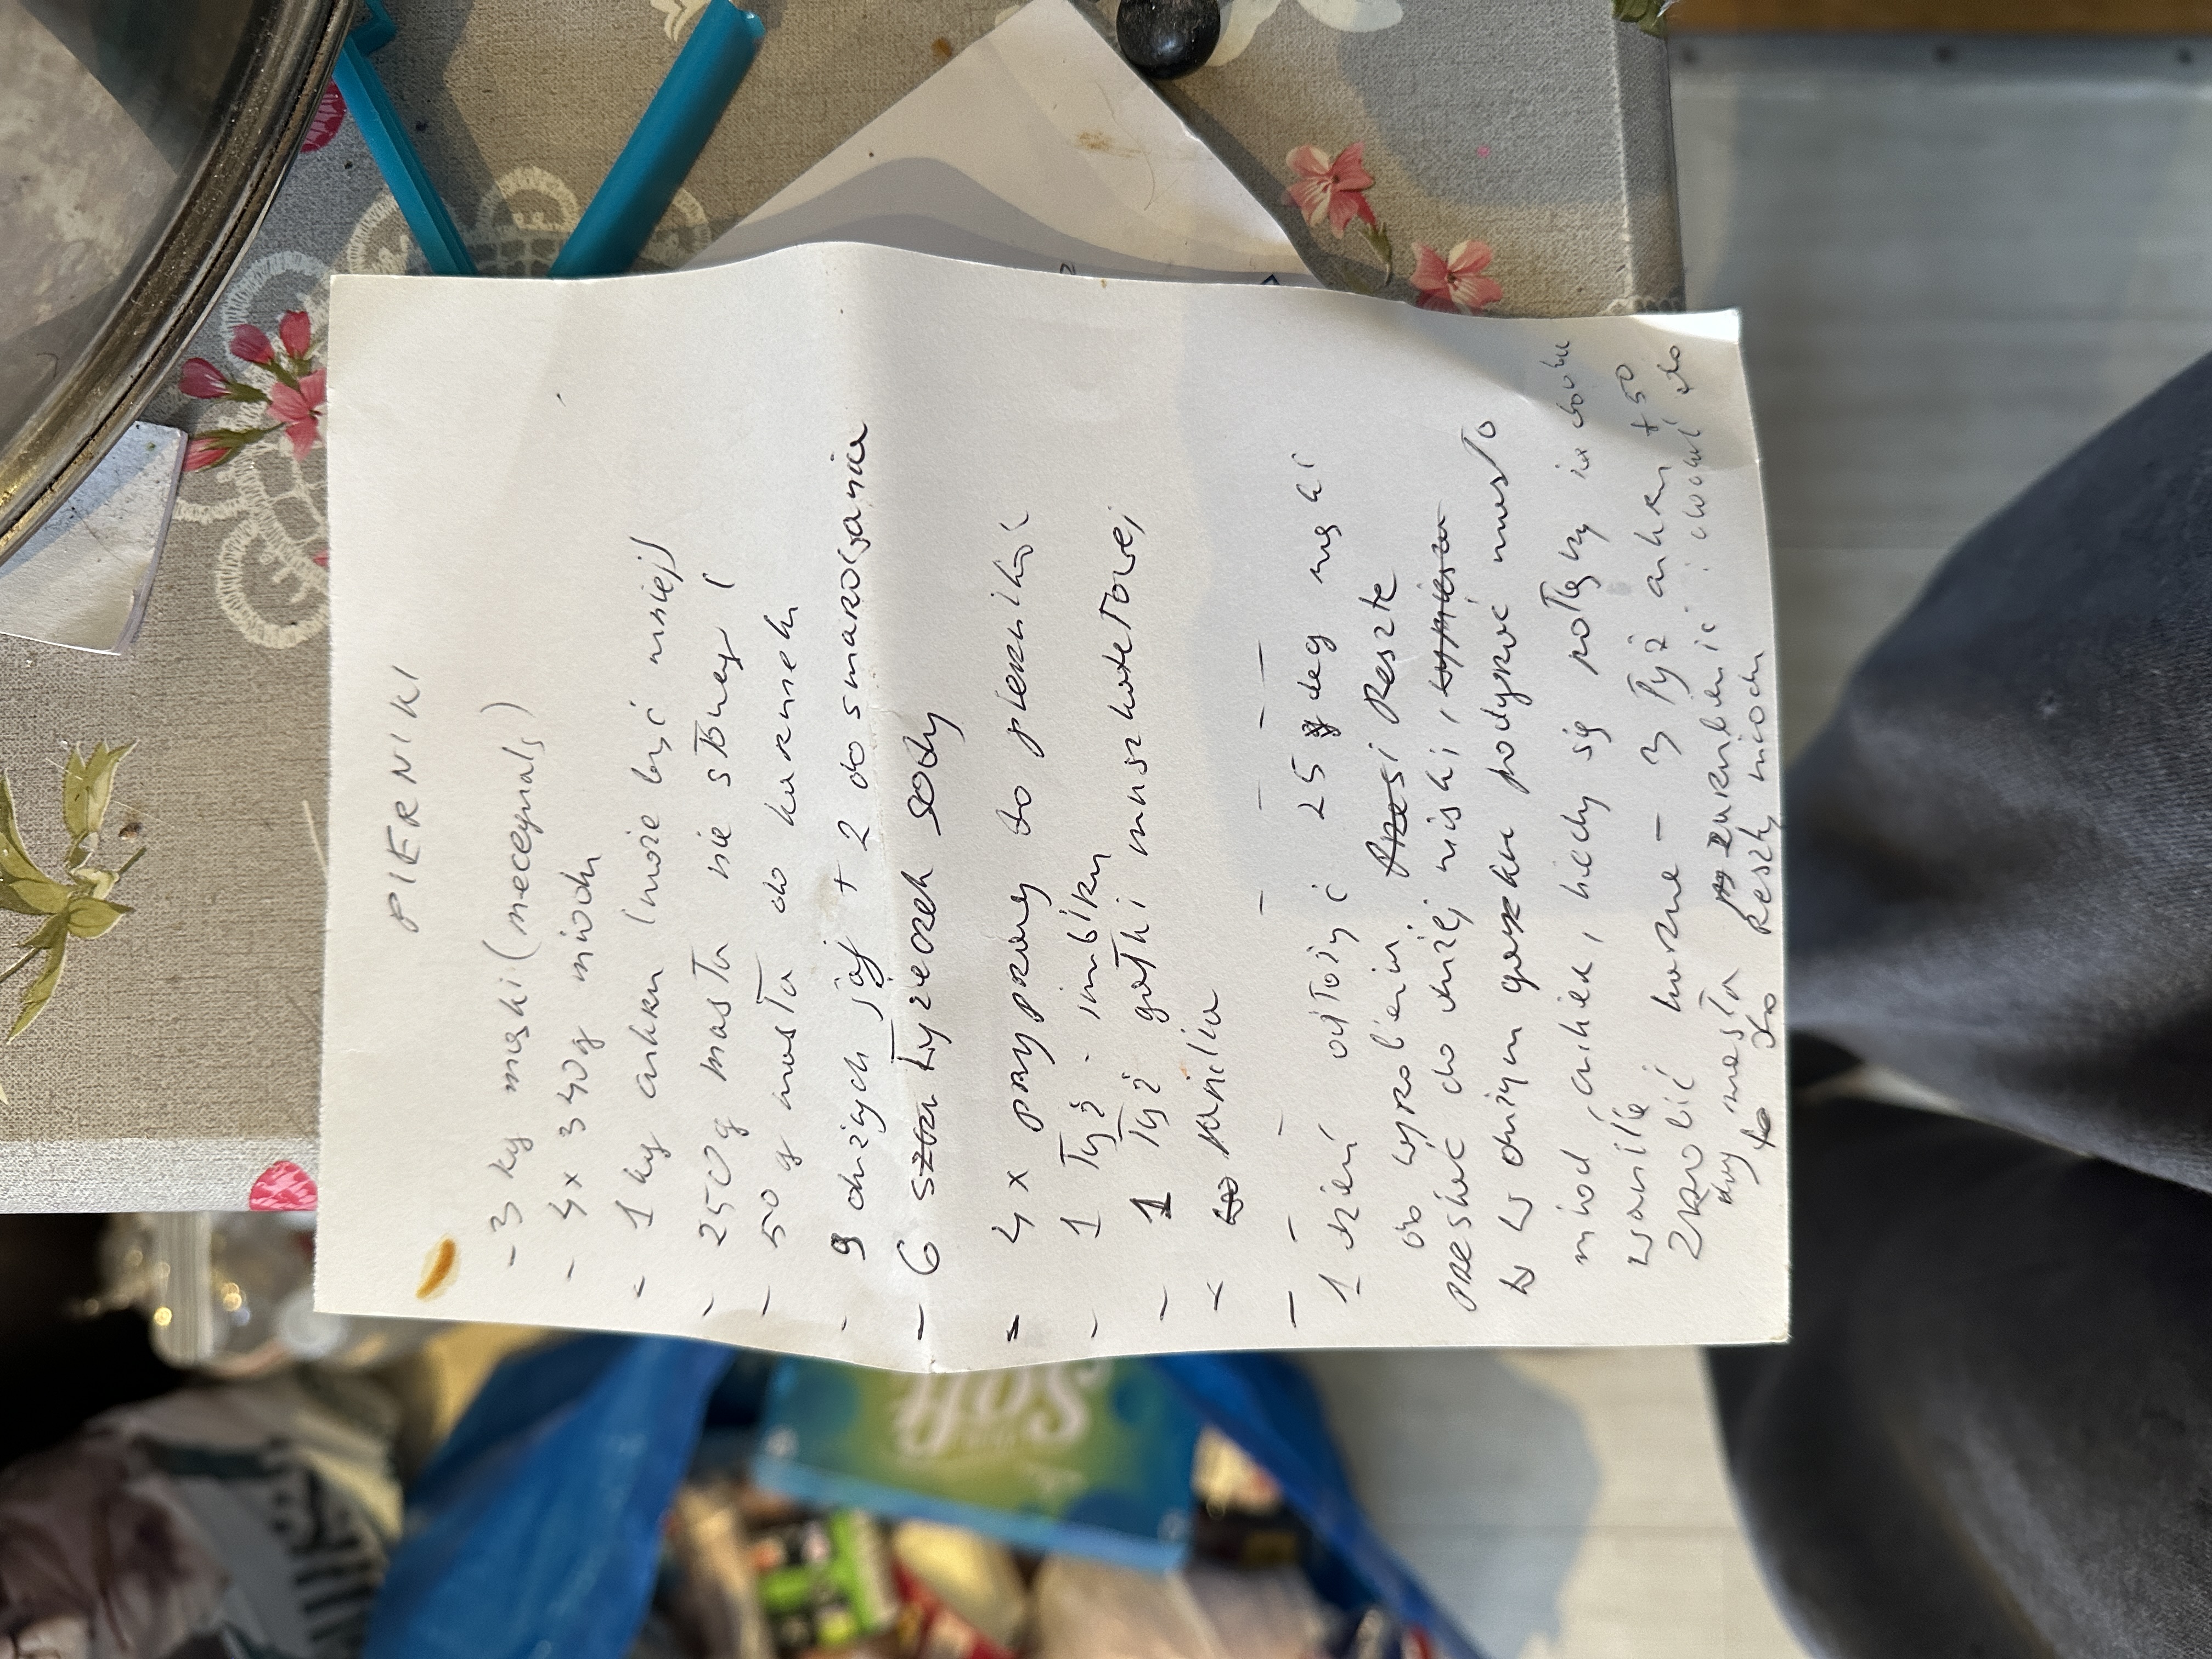 PIERNIKI
- 3 kg mąki (niecepnals)
- 4x 340g miodu
- 1 kg cukru (może być mniej)
- 250 g masła nie słonego!
- 50 g masła do karmelu
- 9 dużych jaj + 2 do smarowania
- 6 łyżeczek sody
- 4x przyprawy do pierników
- 1 łyż. imbiru
- 1 łyż gałki muszkatołowej
- wanilia
- - - - - -
1 dzień odłożyć 25 deg mąki
do wyrobienia. Resztę
przesiać do dużej miski,
w dużym garnku podgrzać masło
miód, cukier, kiedy się połączy ie dodać
wanilię
Zrobić karmel - 3 łyż cukru + 50
g masła zarumienić i dodać do
do reszty miodu
Soft